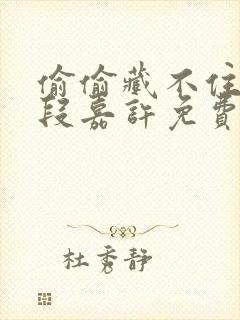 偷偷藏不住
段嘉許免費
杜秀靜